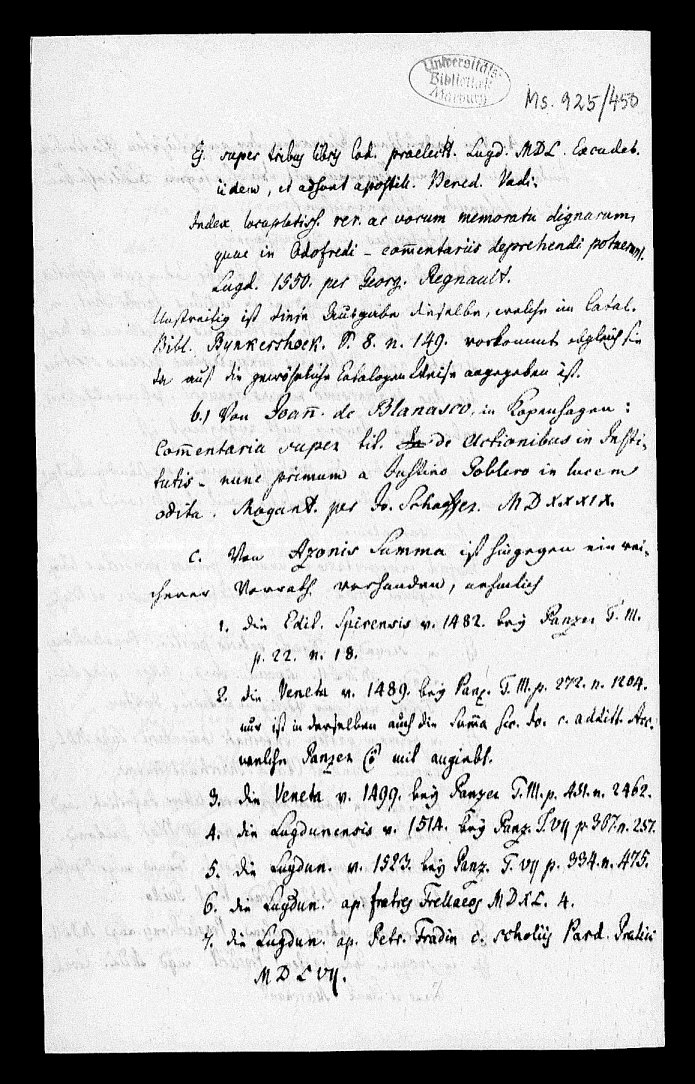 Universitäts-
Bibliothek
Marburg
Ms. 925/450
G. super tribus libris Cod. praelectt. Lugd. MDL. Excudeb.
iidem, et adsunt apostill. Nered. Vadi.
Index locupletiss. rer. ac vocum memoratu dignarum,
quae in Odofredi - com̄entariis deprehendi potuerunt.
Lugd. 1550. per Georg. Regnault.
Unstreitig ist diese Ausgabe dieselbe, welche im Catal.
Bibl. Bynkershoek. P. 8. n. 149. vorkommt obgleich sie
da auf die gewöhnliche Catalogen Weise angegeben ist.
b.) Von Joan̄. de Blanasco, in Kopenhagen:
Com̄entaria super tit. de Actionibus in Insti-
tutis - nunc primum a Justino Goblero in lucem
edita. Mogunt. per Jo. Schoeffer. MDXXXIX.
c. Von Azonis Summa ist hingegen ein rei-
cherer Vorrath vorhanden, nehmlich
1. die Edit. Spirensis v. 1482. bey Panzer T. III.
p. 22. n. 18.
2. die Veneta v. 1489. bey Panz. T. III. p. 272. n. 1204.
nur ist in derselben auch die Sum̄a hic. Jo. c. additt. Acc.
welche Panzer mit angiebt.
3. die Veneta v. 1499. bey Panzer T. III. p. 451. n. 2462.
4. die Lugdunensis v. 1514. bey Panz. T. VII p. 307. n. 257.
5. die Lugdun. v. 1523. bey Panz. T. VII p. 334. n. 475.
6. die Lugdun. ap. fratres Frellaeos MDXL. 4.
7. die Lugdun. ap. Petr. Fradin c. scholiis Pard. Prateii
MDLVII.